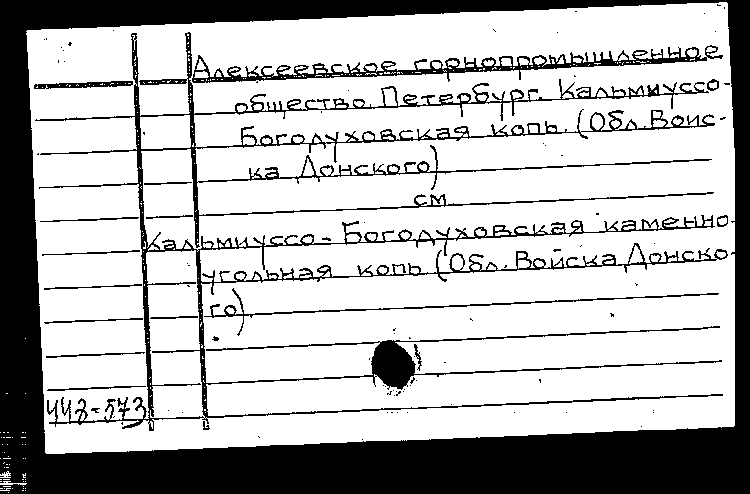 Алексеевское горнопромышленное
общество. Петербург. Кальмиуссо-
Богодуховская копь. (Обл. Войс-
ка Донского)
см.
Кальмиуссо-Богодуховская каменно-
угольная копь (Обл. Войска Донско-
го).
448-573